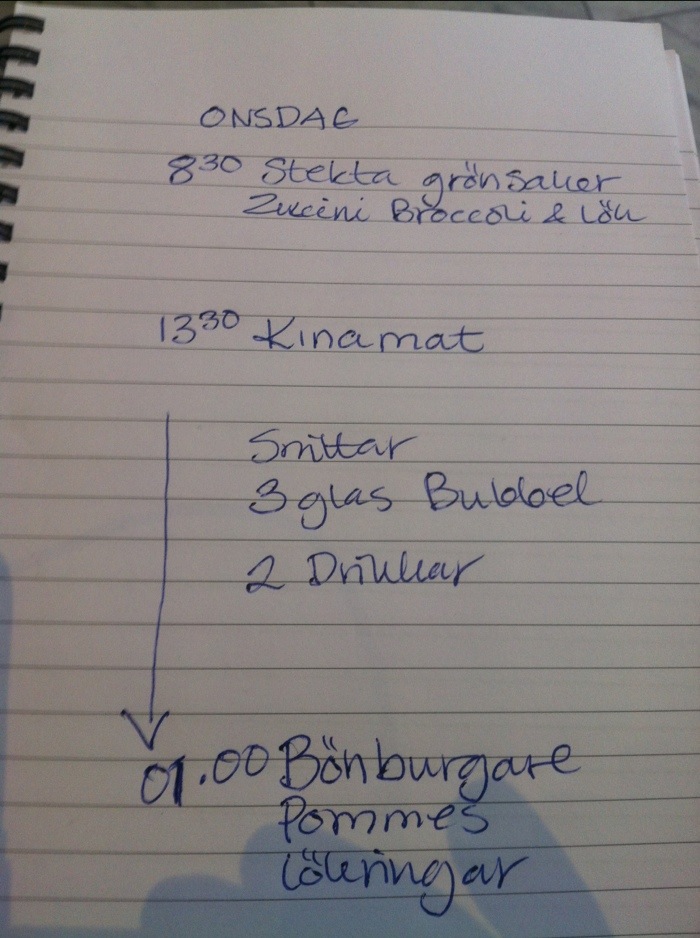 ONSDAG
8³⁰ Stekta grönsaker
Zuccini Broccoli & Lök
13³⁰ Kinamat
Snittar
3 glas Bubbel
2 Drikkar
01.00 Bönburgare
Pommes
Lökringar